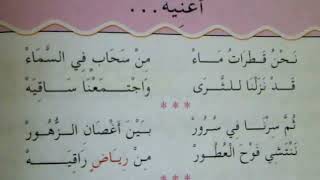 أُغْنِيَة ...
نَحْنُ قَطَرَاتُ مَاءْ مِنْ سَحَابٍ فِي السَّمَاءْ
قَدْ نَزَلْنَا لِلثَّرَى وَاجْتَمَعْنَا سَاقِيَهْ
* * *
ثُمَّ سِرْنَا فِي سُرُورْ بَيْنَ أَغْصَانِ الزُّهُورْ
نَنْتَشِي فَوْحَ الْعُطُورْ مِنْ رِيَاضٍ رَاقِيَهْ
* * *